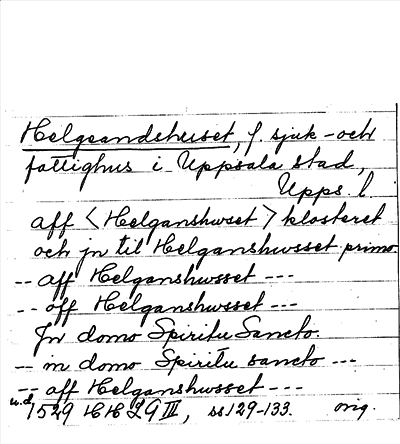 Helgeandshuset, f. sjuk- och
fattighus i Uppsala stad,
Upps. l.
aff <Helganshwset> klosteret
och jn til Helganshwsset primo.
-- aff Helganshwsset ---
-- aff Helganshwsset ---
Jn domo Spiritu Sancto.
-- in domo Spiritu sancto ---
-- aff Helganshwsset ---
u.d. 1529 HH 29 III, ss 129-133. orig.